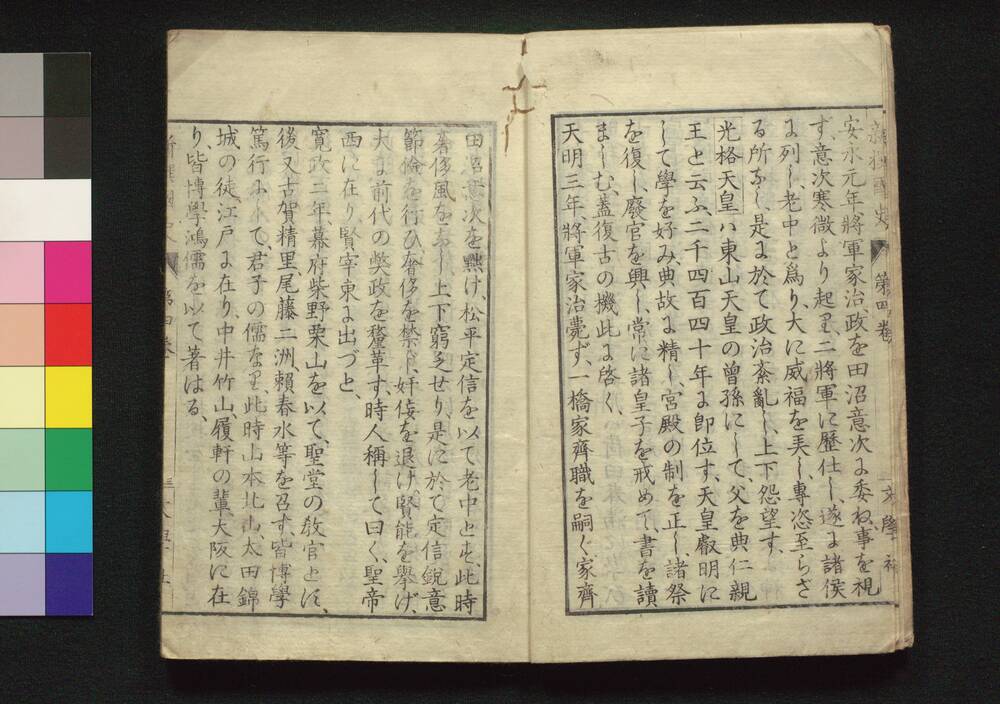 第四卷
文學社
安永元年、將軍家治政を田沼意次に委ね、事を視
す、意次寒微より起り、二將軍に歷仕し、遂に諸侯
に列し、老中と爲り、大に威福を弄し、專恣至らざ
る所なし、是に於て政治紊亂し、上下怨望す、
光格天皇ハ東山天皇の曾孫にして、父を典仁親
王と云ふ、二千四百四十年に卽位す、天皇叡明に
して學を好み、典故に精し、宮殿の制を正し、諸祭
を復し、廢官を興し、常に諸皇子を戒めて、書を讀
ましむ、蓋復古の機此に啓く、
天明三年、將軍家治薨ず、一橋家齊職を嗣ぐ、家齊
田沼意次を黜け、松平定信を以て老中とす、此時
奢侈風をなし、上下窮乏せり、是に於て定信銳意
節儉を行ひ、奢侈を禁じ、奸侫を退け、賢能を擧げ、
大に前代の獘政を釐革す、時人稱して曰く、聖帝
西に在り、賢宰東に出づと、
寬政二年、幕府柴野栗山を以て、聖堂の敎官とす、
後又古賀精里、尾藤二洲、賴春水等を召す、皆博學
篤行にして、君子の儒なり、此時山本北山、太田錦
城の徒江戶に在り、中井竹山、履軒の輩大阪に在
り、皆博學鴻儒を以て著はる、